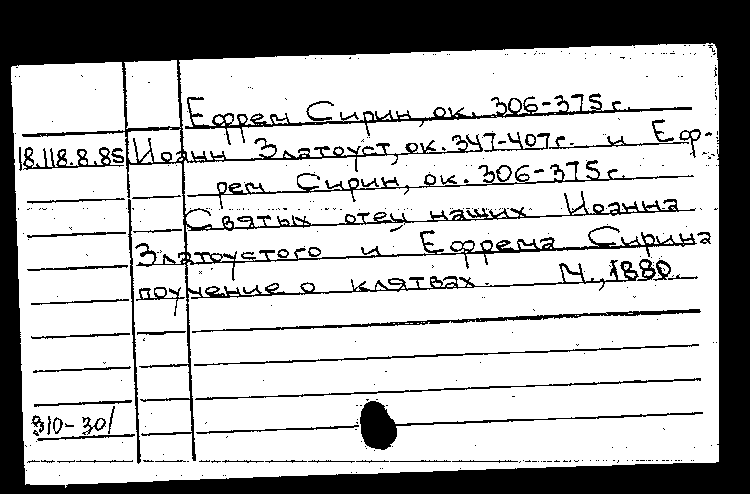 Ефрем Сирин, ок. 306-375 г.
18.118.8.85 Иоанн Златоуст, ок. 347-407г. и Еф-
рем Сирин, ок. 306-375 г.
Святых отец наших Иоанна
Златоустого и Ефрема Сирина
поучение о клятвах. М., 1880.
310-301